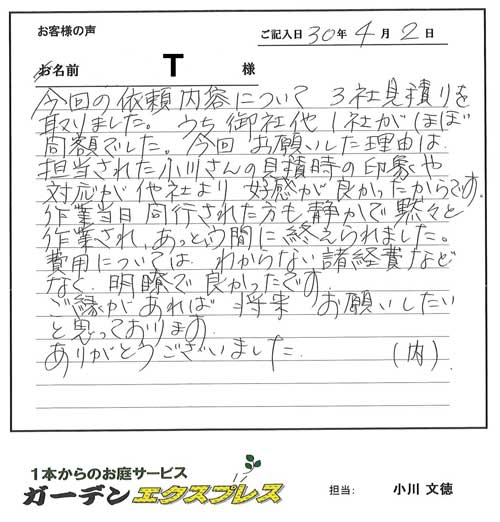 お客様の声
ご記入日 30年 4月 2日
お名前 T 様
今回の依頼内容について 3社見積りを
取りました。うち御社他1社がほぼ
同額でした。今回 お願いした理由は
担当された小川さんの見積時の印象や
対応が他社より 好感が良かったからです。
作業当日同行された方も静かで黙々と
作業され、あっという間に終えられました。
費用については わからない諸経費など
なく、明瞭で良かったです。
ご縁があれば 将来 お願いしたい
と思っております。
ありがとうございました。 (内)
1本からのお庭サービス
ガーデンエクスプレス
担当: 小川 文徳